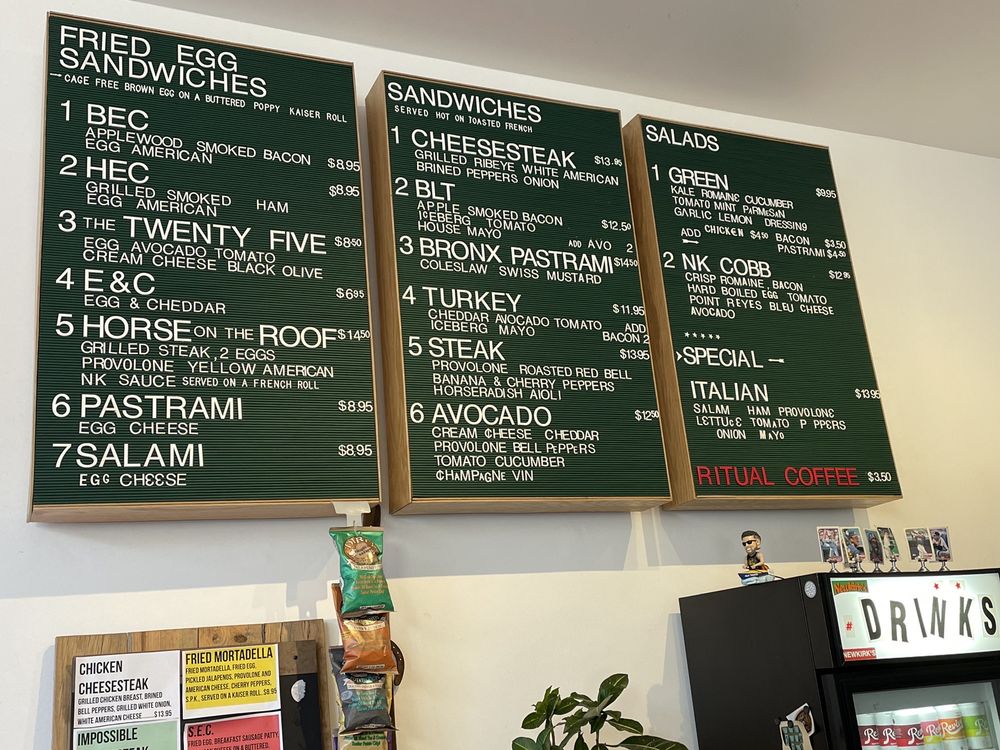 FRIED EGG
SANDWICHES
CAGE FREE BROWN EGG ON A BUTTERED POPPY KAISER ROLL
1 BEC
APPLEWOOD SMOKED BACON $8.95
EGG AMERICAN
2 HEC $8.95
GRILLED SMOKED HAM
EGG AMERICAN
3 THE TWENTY FIVE $8.50
EGG AVOCADO TOMATO
CREAM CHEESE BLACK OLIVE
4 E&C $6.95
EGG & CHEDDAR
5 HORSE ON THE ROOF $14.50
GRILLED STEAK, 2 EGGS
PROVOLONE YELLOW AMERICAN
NK SAUCE SERVED ON A FRENCH ROLL
6 PASTRAMI $8.95
EGG CHEESE
7 SALAMI $8.95
EGG CHEESE
SANDWICHES
SERVED HOT ON TOASTED FRENCH
1 CHEESESTEAK $13.95
GRILLED RIBEYE WHITE AMERICAN
BRINED PEPPERS ONION
2 BLT
APPLE SMOKED BACON
ICEBERG TOMATO $12.50
HOUSE MAYO
ADD AVO 2
3 BRONX PASTRAMI $14.50
COLESLAW SWISS MUSTARD
4 TURKEY $11.95
CHEDDAR AVOCADO TOMATO ADD
ICEBERG MAYO BACON 2
5 STEAK $13.95
PROVOLONE ROASTED RED BELL
BANANA & CHERRY PEPPERS
HORSERADISH AIOLI
6 AVOCADO $12.50
CREAM CHEESE CHEDDAR
PROVOLONE BELL PEPPERS
TOMATO CUCUMBER
CHAMPAGNE VIN
SALADS
1 GREEN $9.95
KALE ROMAINE CUCUMBER
TOMATO MINT PARMESAN
GARLIC LEMON DRESSING
ADD CHICKEN $4.50 BACON $3.50
PASTRAMI $4.50
2 NK COBB $12.95
CRISP ROMAINE, BACON
HARD BOILED EGG TOMATO
POINT REYES BLEU CHEESE
AVOCADO
*****
SPECIAL
ITALIAN $13.95
SALAM HAM PROVOLONE
LETTUCE TOMATO P PPERS
ONION MAYO
RITUAL COFFEE $3.50
CHICKEN
CHEESESTEAK
GRILLED CHICKEN BREAST, BRINED
BELL PEPPERS, GRILLED WHITE ONION,
WHITE AMERICAN CHEESE $13.95
FRIED MORTADELLA
FRIED MORTADELLA, FRIED EGG,
PICKLED JALAPENOS, PROVOLONE AND
AMERICAN CHEESE, CHERRY PEPPERS,
S.P.K., SERVED ON A KAISER ROLL. $8.95
IMPOSSIBLE
S.E.C.
FRIED EGG, BREAKFAST SAUSAGE PATTY,
# DRINKS
NEWKIRK'S